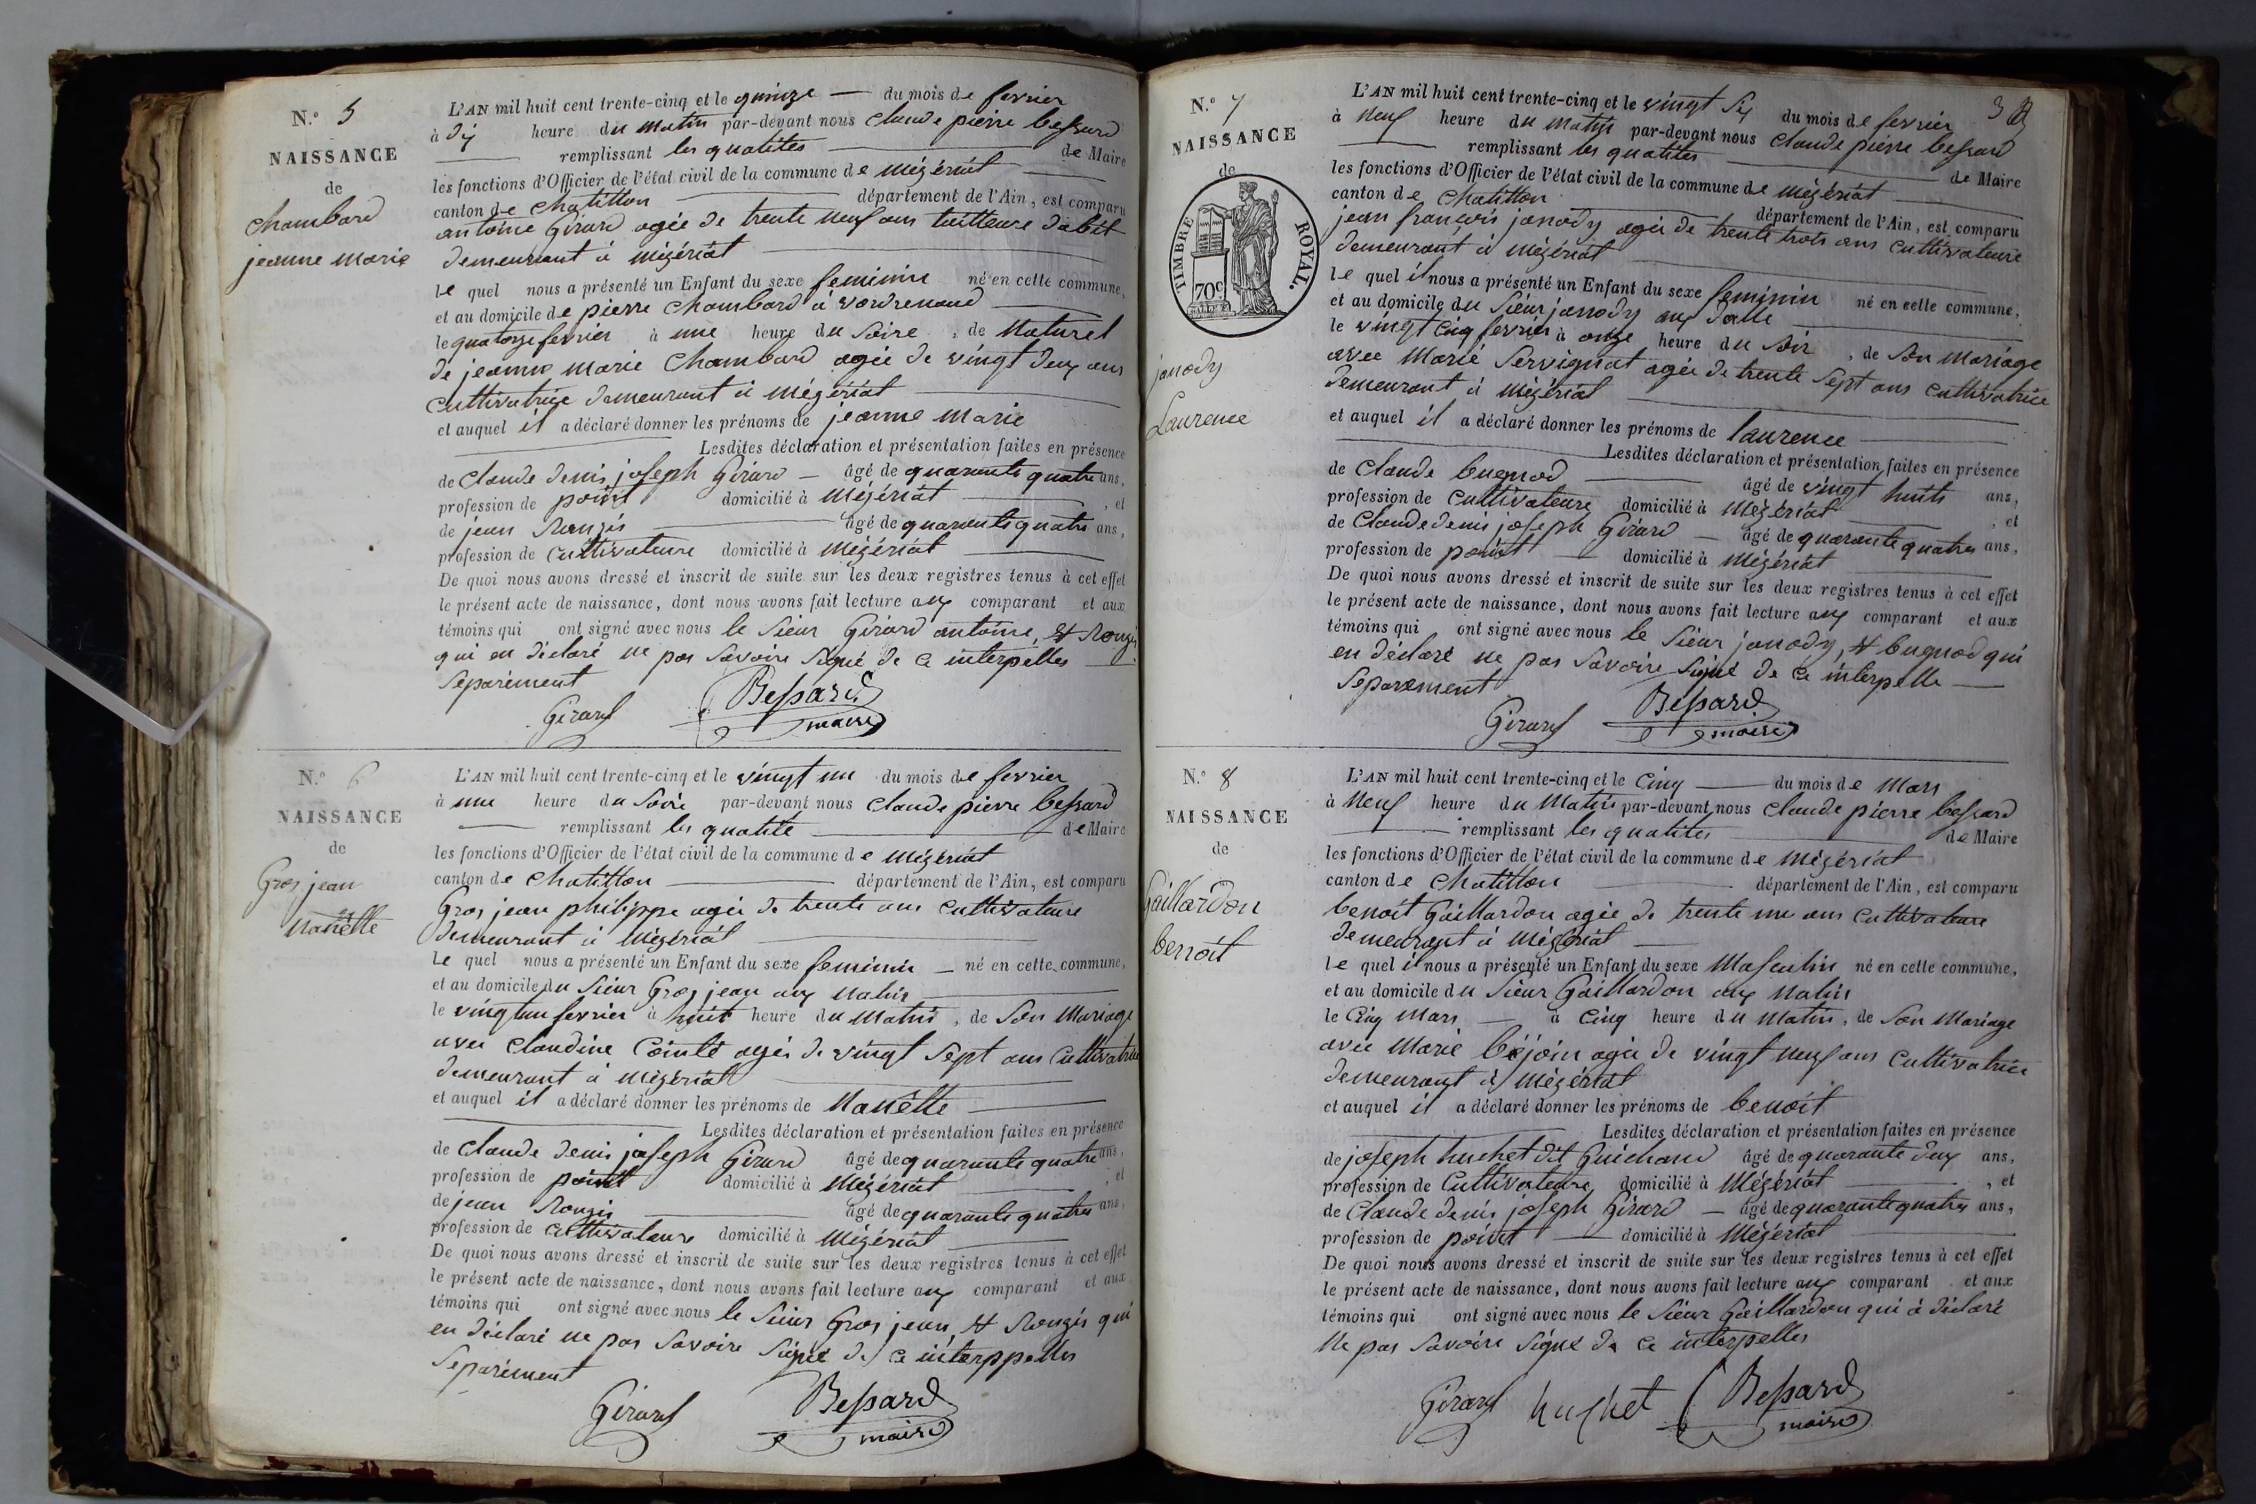 N.º 5
NAISSANCE
de
Chambard
jeanne marie
L'AN mil huit cent trente-cinq et le quinze — du mois de fevrier
à dix heure du matin par-devant nous Claude pierre bessard
remplissant les qualités de Maire
les fonctions d'Officier de l'état civil de la commune de mézériat
canton de Chatillon département de l'Ain, est comparu
antoine Girard agée de trente neuf ans tailleure dabit
demeurant à mézériat
le quel nous a présenté un Enfant du sexe feminin né en cette commune,
et au domicile de pierre Chambard à vordrenaud
le quatorze fevrier à une heure du Soire, de Naturel
de jeanne marie Chambard agée de vingt deux ans
Cultivatrice demeurant à mézériat
et auquel il a déclaré donner les prénoms de jeanne marie
Lesdites déclaration et présentation faites en présence
de Claude denis joseph Girard — âgé de quarante quatre ans,
profession de point domicilié à Mézériat, et
de jean Rongis âgé de quarante quatre ans,
profession de Cultivateure domicilié à Mézériat
De quoi nous avons dressé et inscrit de suite sur les deux registres tenus à cet effet
le présent acte de naissance, dont nous avons fait lecture aux comparant et aux
témoins qui ont signé avec nous le Sieur Girard antoine, et Rongis
qui on déclaré ne pas Savoire Signé de ce interpelles
Separément
Girard Bessard
maire
N.º 6
NAISSANCE
de
Gros jean
Nanette
L'AN mil huit cent trente-cinq et le vingt un du mois de fevrier
à une heure du Soire par-devant nous Claude pierre bessard
remplissant les qualité de Maire
les fonctions d'Officier de l'état civil de la commune de Mézériat
canton de Chatillon département de l'Ain, est comparu
Gros jean philippe agée de trente ans Cultivateure
demeurant à Mézériat
le quel nous a présenté un Enfant du sexe feminin — né en cette commune,
et au domicile du Sieur Gros jean aux Mahis
le vingt un fevrier à huit heure du Matin, de Son Mariage
avec Claudine Cointé agée de vingt Sept ans Cultivatrice
demeurant à Mézériat
et auquel il a déclaré donner les prénoms de Nanette
Lesdites déclaration et présentation faites en présence
de Claude denis joseph Girard âgé de quarante quatre ans,
profession de point domicilié à Mézériat, et
de jean Rongis âgé de quarante quatre ans,
profession de Cultivateure domicilié à Mézériat
De quoi nous avons dressé et inscrit de suite sur les deux registres tenus à cet effet
le présent acte de naissance, dont nous avons fait lecture aux comparant et aux
témoins qui ont signé avec nous le Sieur Gros jean, et Rongis qui
en déclaré ne pas Savoire Signé de ce interppelles
Separément
Girard Bessard
maire
N.º 7
NAISSANCE
de
TIMBRE ROYAL.
70c
janody
Laurence
L'AN mil huit cent trente-cinq et le vingt Six du mois de fevrier
à Neuf heure du Matin par-devant nous Claude pierre bessard
remplissant les qualités de Maire
les fonctions d'Officier de l'état civil de la commune de mézériat
canton de Chatillon département de l'Ain, est comparu
jean françois janody agée de trente trois ans Cultivateure
demeurant à mézériat
le quel il nous a présenté un Enfant du sexe feminin né en cette commune,
et au domicile du Sieur janody aux
le vingt Cinq fevrier à onze heure du Soir, de Son Mariage
avec Marie Servignat agée de trente Sept ans Cultivatrice
demeurant à Mézériat
et auquel il a déclaré donner les prénoms de laurence
Lesdites déclaration et présentation faites en présence
de Claude bugnod âgé de vingt huits ans,
profession de Cultivateure domicilié à Mézériat, et
de Claude denis joseph Girard — âgé de quarante quatres ans,
profession de point — domicilié à Mézériat
De quoi nous avons dressé et inscrit de suite sur les deux registres tenus à cet effet
le présent acte de naissance, dont nous avons fait lecture aux comparant et aux
témoins qui ont signé avec nous le Sieur janody, et bugnod qui
en déclaré ne pas Savoire Signé de ce interpelle
Separement
Girard Bessard
maire
N.º 8
NAISSANCE
de
Gaillardon
benoit
L'AN mil huit cent trente-cinq et le Cinq — du mois de Mars
à Neuf heure du Matin par-devant nous Claude pierre bessard
remplissant les qualités de Maire
les fonctions d'Officier de l'état civil de la commune de Mézériat
canton de Chatillon département de l'Ain, est comparu
benoit Gaillardon agée de trente un ans Cultivateure
demeurant à Mézériat
le quel il nous a présenté un Enfant du sexe Masculin né en cette commune,
et au domicile du Sieur Gaillardon aux Mahis
le Cinq Mars — à Cinq heure du Matin, de Son Mariage
avec Marie béjoin agée de vingt Neuf ans Cultivatrice
demeurant à Mézériat
et auquel il a déclaré donner les prénoms de benoit
Lesdites déclaration et présentation faites en présence
de joseph huchet dit Guichard âgé de quarante deux ans,
profession de Cultivateure domicilié à Mézériat, et
de Claude denis joseph Girard — âgé de quarante quatres ans,
profession de point — domicilié à Mézériat
De quoi nous avons dressé et inscrit de suite sur les deux registres tenus à cet effet
le présent acte de naissance, dont nous avons fait lecture aux comparant et aux
témoins qui ont signé avec nous le Sieur Gaillardon qui à déclaré
Ne pas Savoire Signé de ce interpelles
Girard huchet Bessard
maire